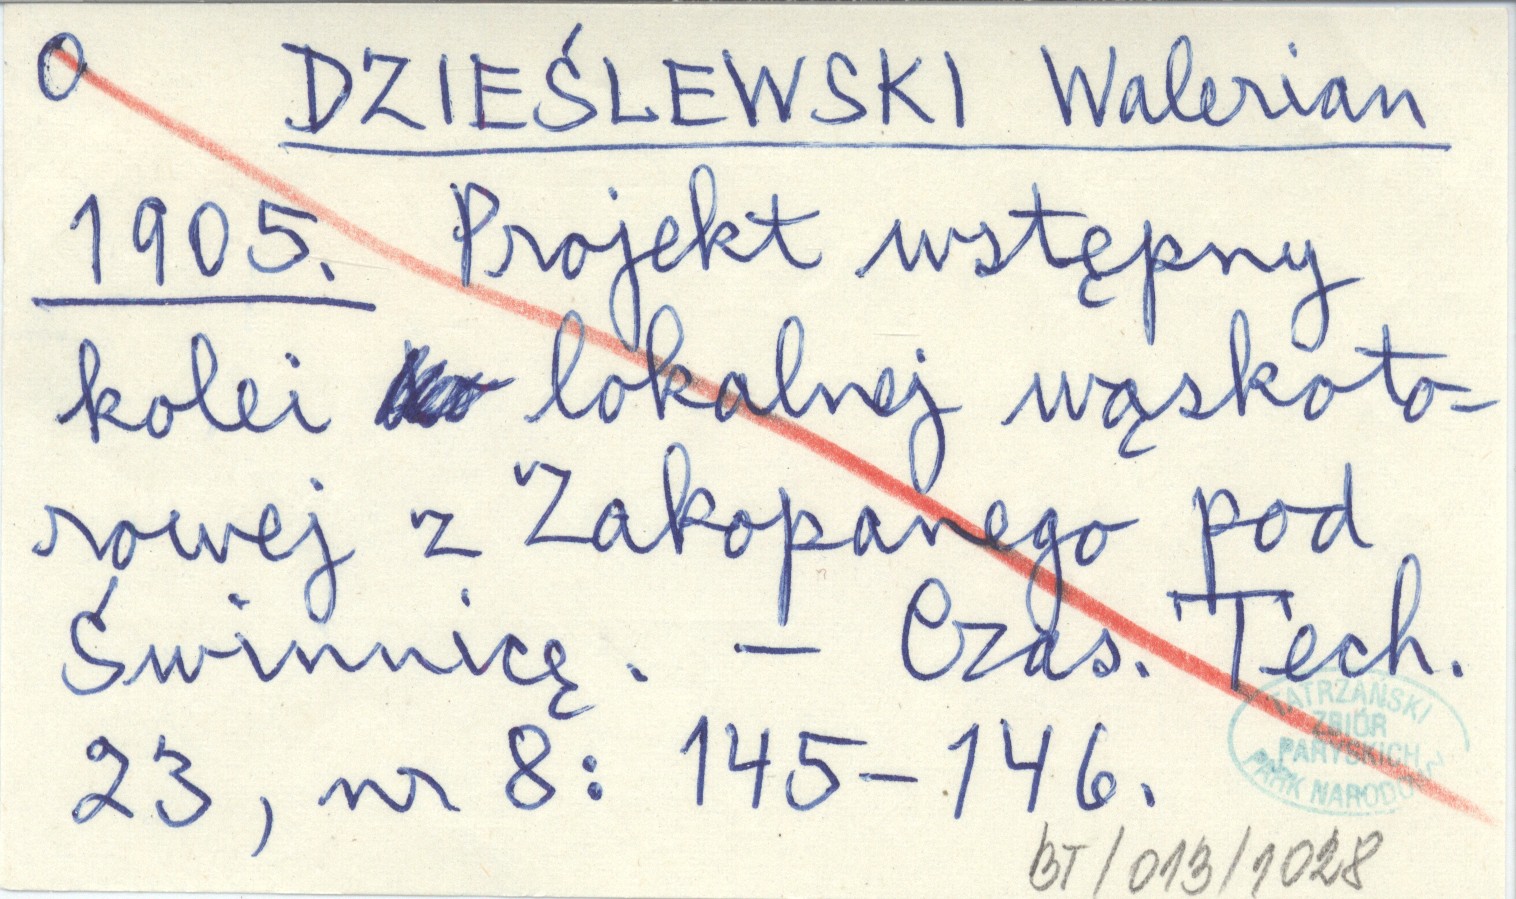 O DZIEŚLEWSKI Walerian
1905. Projekt wstępny
kolei lokalnej wąskoto-
rowej z Zakopanego pod
Świnnicę. — Czas. Tech.
23, nr 8: 145-146.
TATRZAŃSKI
ZBIÓR
PARYSKICH
PARK NARODOWY
BT/013/1028